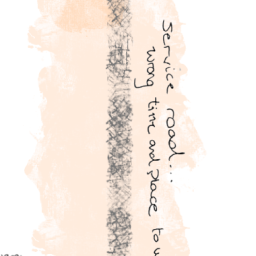 service road...
wrong time and place to